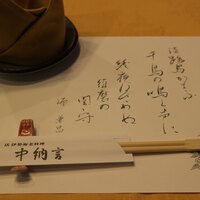 淡路島かよふ
千鳥の鳴く声に
幾夜ねざめぬ
須磨の
関守
源 兼昌
活伊勢海老料理
中納言